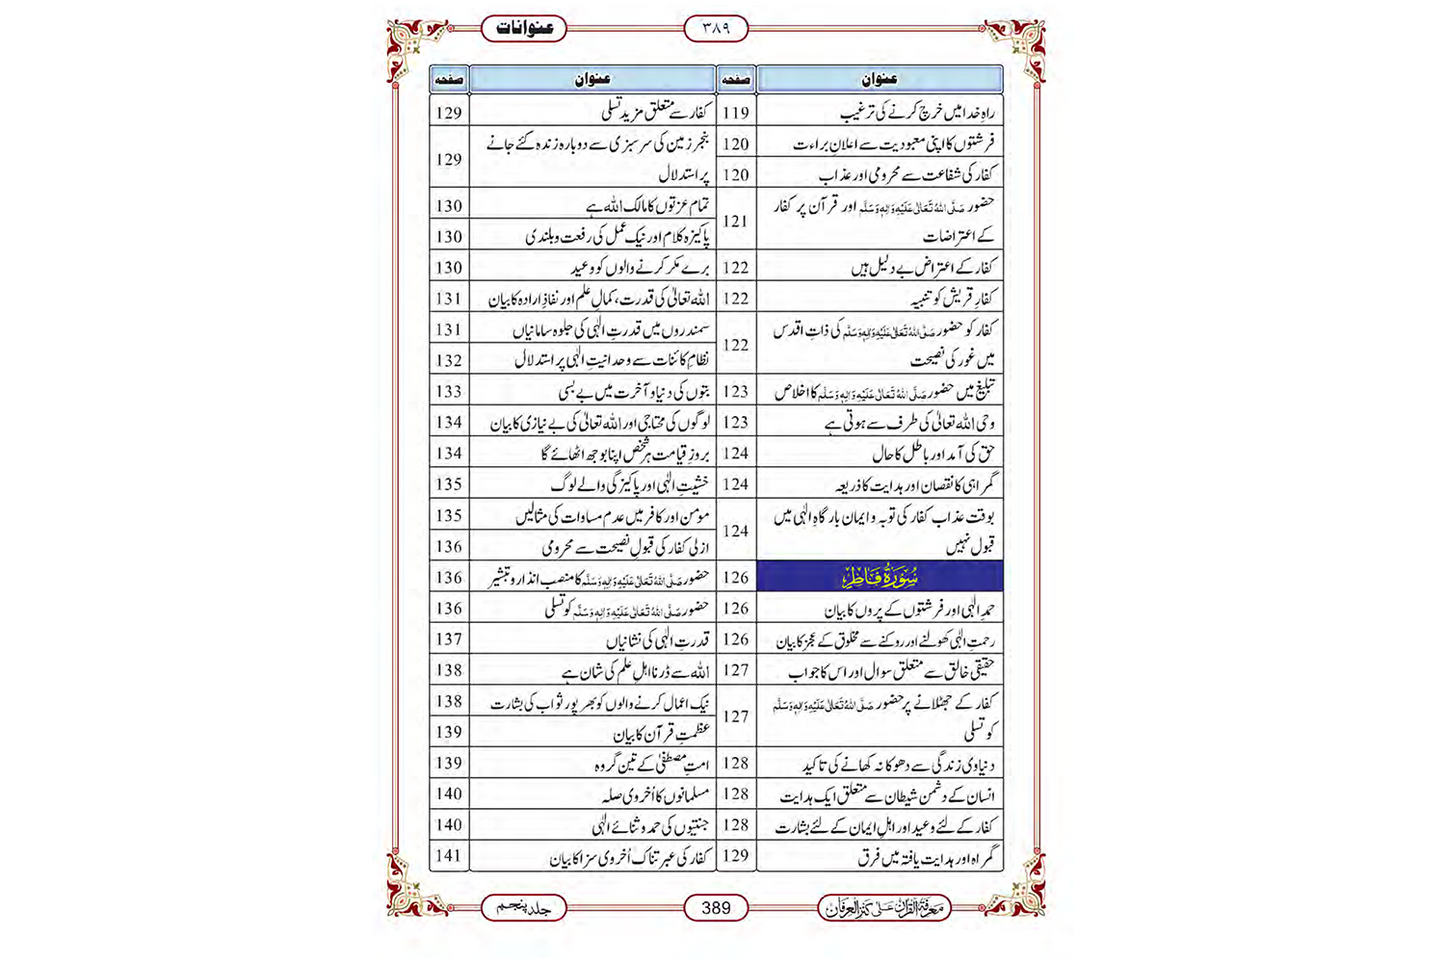 عنوانات
٣٨٩
عنوان صفحہ
راہِ خدا میں خرچ کرنے کی ترغیب 119
فرشتوں کا اپنی معبودیت سے اعلانِ براءت 120
کفار کی شفاعت سے محرومی اور عذاب 120
حضور صَلَّی اللہُ تَعَالٰی عَلَیْہِ وَاٰلِہٖ وَسَلَّم اور قرآن پر کفار
کے اعتراضات 121
کفار کے اعتراض بے دلیل ہیں 122
کفارِ قریش کو تنبیہ 122
کفار کو حضور صَلَّی اللہُ تَعَالٰی عَلَیْہِ وَاٰلِہٖ وَسَلَّم کی ذاتِ اقدس
میں غور کی نصیحت 122
تبلیغ میں حضور صَلَّی اللہُ تَعَالٰی عَلَیْہِ وَاٰلِہٖ وَسَلَّم کا اخلاص 123
وحی اللہ تعالٰی کی طرف سے ہوتی ہے 123
حق کی آمد اور باطل کا حال 124
گمراہی کا نقصان اور ہدایت کا ذریعہ 124
بوقت عذاب کفار کی توبہ و ایمان بارگاہِ الٰہی میں
قبول نہیں 124
سُوْرَۃُ فَاطِرْ 126
حمدِ الٰہی اور فرشتوں کے پروں کا بیان 126
رحمتِ الٰہی کھولنے اور روکنے سے مخلوق کے عجز کا بیان 126
حقیقی خالق سے متعلق سوال اور اس کا جواب 127
کفار کے جھٹلانے پر حضور صَلَّی اللہُ تَعَالٰی عَلَیْہِ وَاٰلِہٖ وَسَلَّم
کو تسلی 127
دنیاوی زندگی سے دھوکا نہ کھانے کی تاکید 128
انسان کے دشمن شیطان سے متعلق ایک ہدایت 128
کفار کے لئے وعید اور اہلِ ایمان کے لئے بشارت 128
گمراہ اور ہدایت یافتہ میں فرق 129
عنوان صفحہ
کفار سے متعلق مزید تسلی 129
بنجر زمین کی سرسبزی سے دوبارہ زندہ کئے جانے
پر استدلال 129
تمام عزتوں کا مالک اللہ ہے 130
پاکیزہ کلام اور نیک عمل کی رفعت و بلندی 130
برے مکر کرنے والوں کو وعید 130
اللہ تعالٰی کی قدرت، کمالِ علم اور نفاذِ ارادہ کا بیان 131
سمندروں میں قدرتِ الٰہی کی جلوہ سامانیاں 131
نظامِ کائنات سے وحدانیتِ الٰہی پر استدلال 132
بتوں کی دنیا و آخرت میں بے بسی 133
لوگوں کی محتاجی اور اللہ تعالٰی کی بے نیازی کا بیان 134
بروزِ قیامت ہر شخص اپنا بوجھ اٹھائے گا 134
خشیتِ الٰہی اور پاکیزگی والے لوگ 135
مومن اور کافر میں عدم مساوات کی مثالیں 135
ازلی کفار کی قبولِ نصیحت سے محرومی 136
حضور صَلَّی اللہُ تَعَالٰی عَلَیْہِ وَاٰلِہٖ وَسَلَّم کا منصب انذار و تبشیر 136
حضور صَلَّی اللہُ تَعَالٰی عَلَیْہِ وَاٰلِہٖ وَسَلَّم کو تسلی 136
قدرتِ الٰہی کی نشانیاں 137
اللہ سے ڈرنا اہلِ علم کی شان ہے 138
نیک اعمال کرنے والوں کو بھرپور ثواب کی بشارت 138
عظمتِ قرآن کا بیان 139
امتِ مصطفیٰ کے تین گروہ 139
مسلمانوں کا اُخروی صلہ 140
جنتیوں کی حمد و ثنائے الٰہی 140
کفار کی عبرتناک اُخروی سزا کا بیان 141
مَعْرِفَۃُ الْقُرْاٰن عَلٰی کَنْزِ الْعِرْفَان
389
جلد پنجم